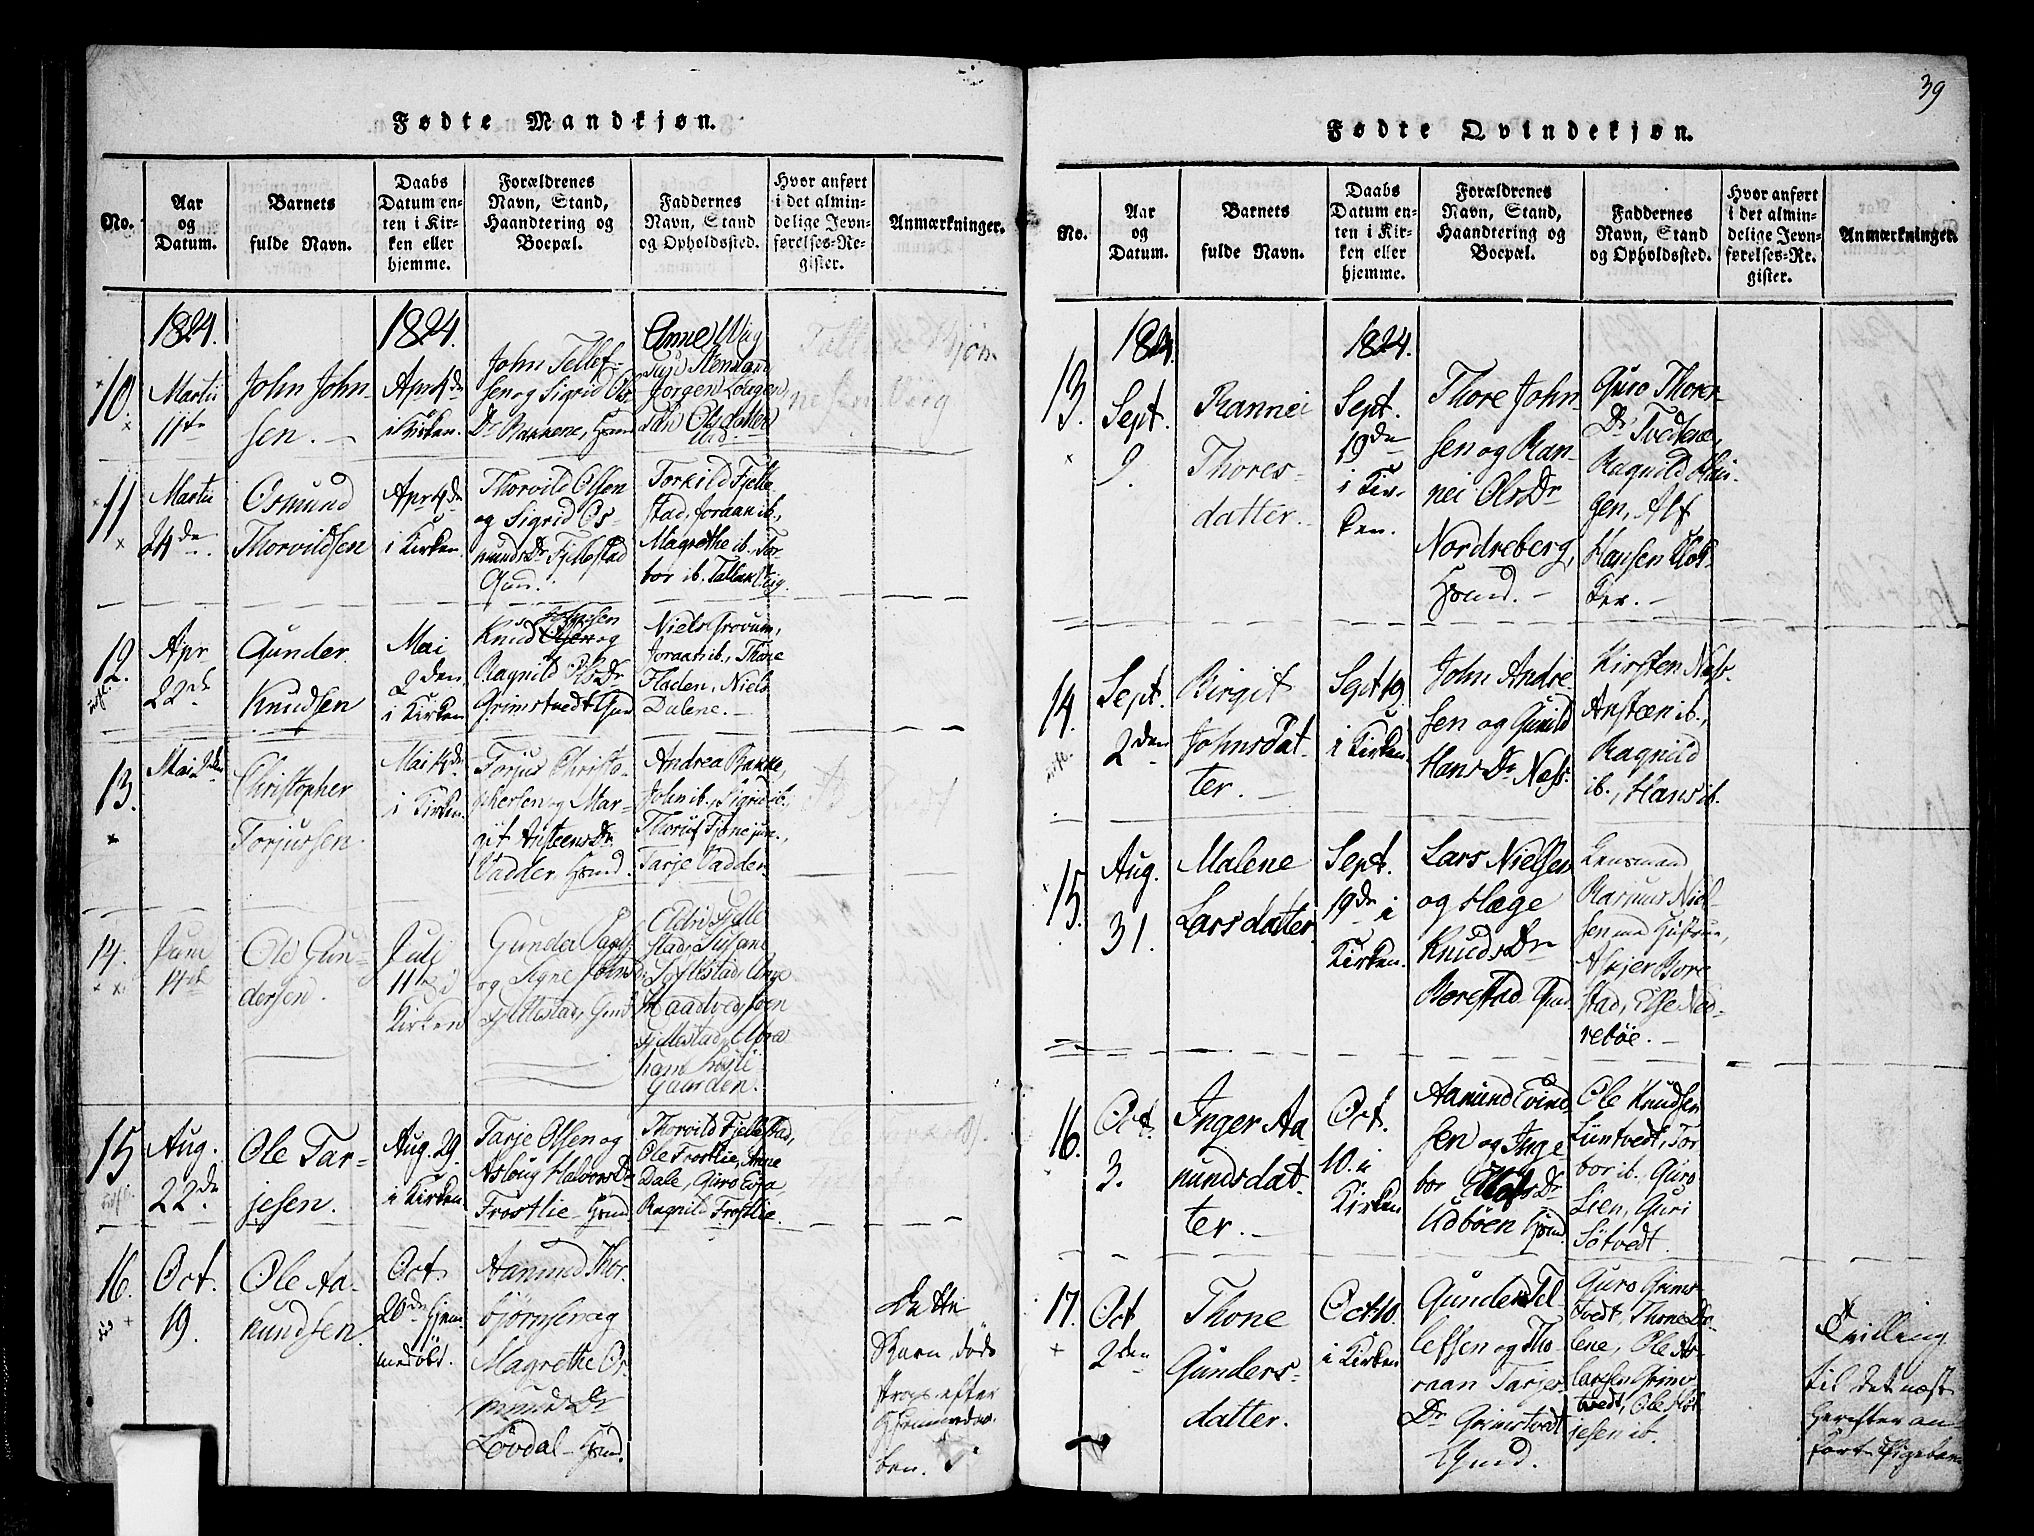 39
Fødte Mandkjøn.
No.
Aar
og
Datum.
Barnets
fulde Navn.
Daabs
Datum en-
ten i Kir-
ken eller
hjemme.
Forældrenes
Navn, Stand,
Haandtering og
Boepæl.
Faddernes
Navn, Stand
og Opholdssted.
Hvor anført
i det almin-
delige Jevn-
førelses-Re-
gister.
Anmærkninger.
1824.
1824.
10.
Martii
11te
John John-
sen.
Apr 4de
i Kirken.
John Tellef-
sen og Sigrid Ols
Dr Bakkene, Gaard
Anne Wiig
Jørgen
Olsdatter
ibid.
11
Martii
24de
Osmund
Thorvildsen
Apr 4de
i Kirken
Thorvild Olsen
og Sigrid Os-
munds Dr Fjellestad
Gaard.
Torkild Fjelle
stad, Joraan ib.,
Magrethe ib. Tor-
bor ib. Tallak Wiig.
12.
Apr
22de
Gunder
Knudsen
Mai
2den
i Kirken
Johnsen
Knud Olsen og
Ragnild Ols Dr
Grimstvedt Gaard
Niels Grovum,
Joraan ib., Thone
Floden, Niels
Dalene.
13.
Mai 2den
Christopher
Torjussen.
Mai
i Kirken
Torjus Christo-
phersen og Mar-
git Ansteens Dr
Vadder, Gaard.
Andrea Bakke,
John ib., Sigrid ib.,
Tarje Vadder
14.
Juni
14de
Ole Gun-
dersen.
Juli
11te i
Kirken
Gunder
og Signe Johns Dr
Fjellestad, Gaard
Fjelle
stad, Susane
Fjellestad, Aage
Fjellestad, Abra
ham
Gaarden.
15
Aug.
22de
Ole Tar-
jesen.
Aug. 29.
i Kirken
Tarje Olsen og
Aslaug Halvors Dr
Frostlie Gaard
Thorvild Fjellestad,
Ole Frostlie, Anne
Dale, Guro
Ragnild Frostlie.
16.
Oct.
19.
Ole Aa-
nundsen.
Oct.
20de hjem-
medøbt.
Aanund Thor-
bjørnsen og
Magrethe Os-
munds Dr
Løvdal Gaard.
Dette
Barn døde
strax efter
Hjemmedaa-
ben.
Fødte Qvindekjøn.
No.
Aar
og
Datum.
Barnets
fulde Navn.
Daabs
Datum en-
ten i Kir-
ken eller
hjemme.
Forældrenes
Navn, Stand,
Haandtering og
Boepæl.
Faddernes
Navn, Stand
og Opholdssted.
Hvor anført
i det almin-
delige Jevn-
førelses-Re-
gister.
Anmærkninger.
1824.
1824.
13.
Sept.
9.
Rannei
Thores-
datter.
Sept.
19de
i Kir-
ken.
Thore John-
sen og Ran-
nei Ols Dr
Nordreberg,
Gaard.
Guro Thores-
Dr Tvedtene,
Ragnild
gen, Alf
Hansen Klok-
ker.
14.
Sept.
2den
Birgit
Johnsdat-
ter.
Sept 19.
i Kirken
John Andre-
sen og Gunild
Hans Dr Næss.
Kirsten Næss.
Ansteen ib.,
Ragnild
ib., Hans ib.
15.
Aug.
31.
Malene
Larsdatter.
Sept.
19de i
Kirken.
Lars Nielsen
og Hæge
Knuds Dr
Borestad Gaard
Lensmand
Rasmus Niel-
sen med Hustrue,
Asbjør Bore
stad, Else Ned-
rebøe.
16.
Oct.
3.
Inger Aa-
nundsdat-
ter.
Oct.
10. i
Kirken
Aanund Evind
sen og Inge-
bor Dr
Udbøen Gaard.
Ole Knudsen
Luntvedt, Tor
bor ib. Guro
Lien, Guri
Søtvedt.
17.
Oct
2den
Thone
Gunders-
datter.
Oct 10.
i Kirken
Gunder Tel-
lefsen og Tho-
raan Tarjes-
Dr Grimstvedt
Gaard.
Guro Grims
tvedt, Thone Da-
lene, Ole As-
laksen Grims-
tvedt, Ole
jesen ib.
Tvilling
til det næst
herefter an
førte Pigebarn